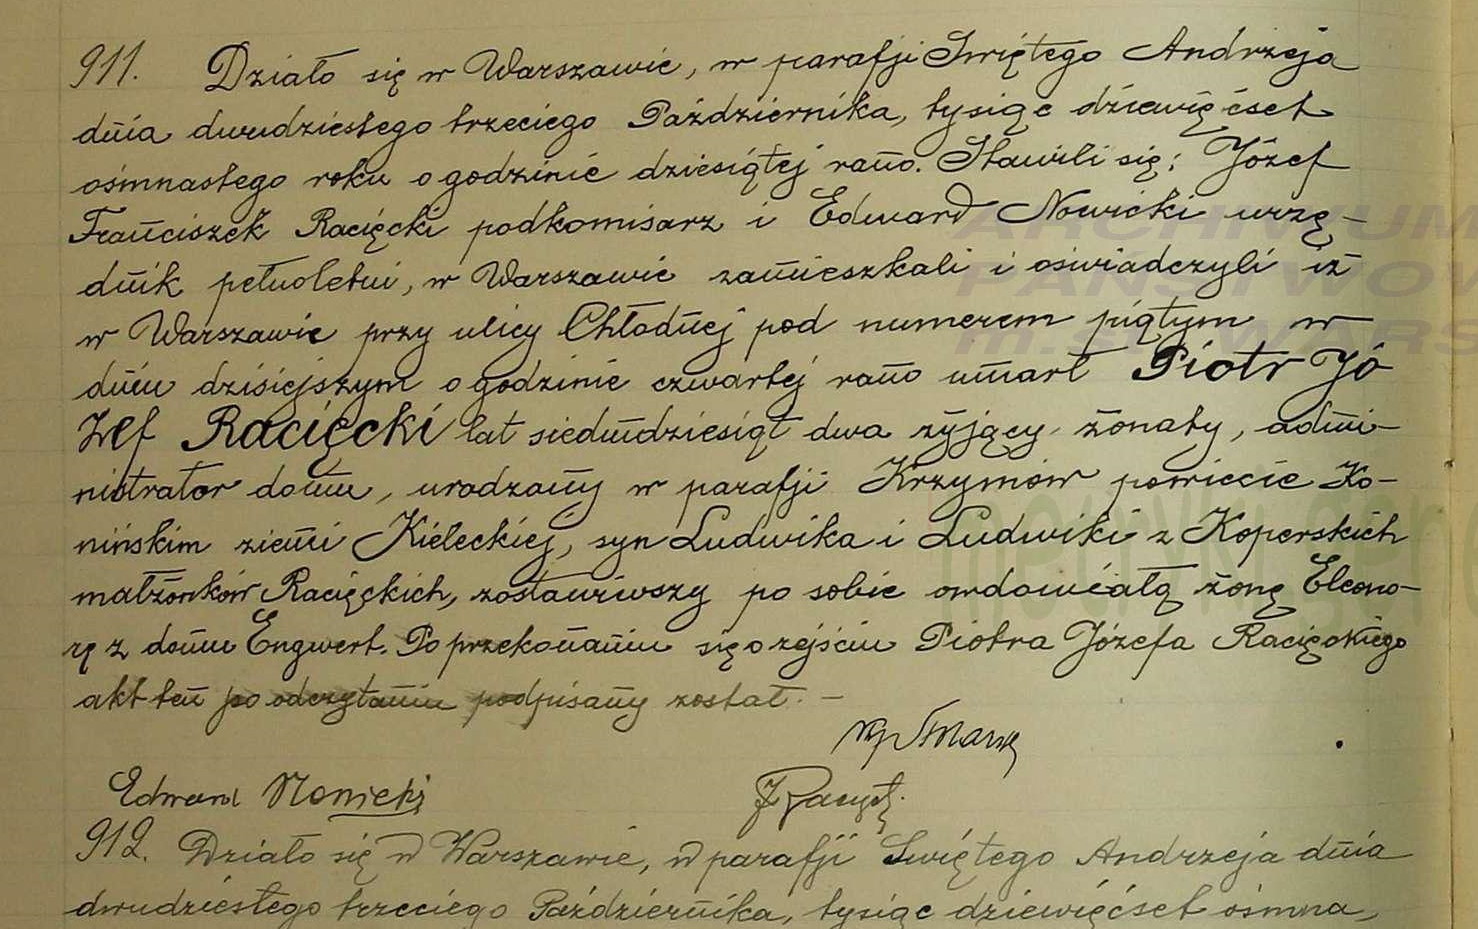 911. Działo się w Warszawie, w parafji Świętego Andrzeja
dnia dwudziestego trzeciego Października, tysiąc dziewięćset
ośmnastego roku o godzinie dziesiątej rano. Stawili się: Józef
Franciszek Racięcki podkomisarz i Edward Nowicki urzę-
dnik pełnoletni, w Warszawie zamieszkali i oświadczyli iż
w Warszawie przy ulicy Chłodnej pod numerem piątym w
dniu dzisiejszym o godzinie czwartej rano umarł Piotr Jó
zef Racięcki lat siedmdziesiąt dwa żyjący, żonaty, admi-
nistrator domu, urodzony w parafji Krzymów powiecie Ko-
nińskim ziemi Kieleckiej, syn Ludwika i Ludwiki z Koperskich
małżonków Racięckich, zostawiwszy po sobie owdowiałą żonę Eleono-
rę z domu Engwert. Po przekonaniu się o zejściu Piotra Józefa Racięckiego
akt ten po odczytaniu podpisany został. -
Edward Nowicki
912. Działo się w Warszawie, w parafji Świętego Andrzeja dnia
dwudziestego trzeciego Października, tysiąc dziewięćset ośmna-
ARCHIWUM
PAŃSTWOW
m.st. WARS
metryki.gen